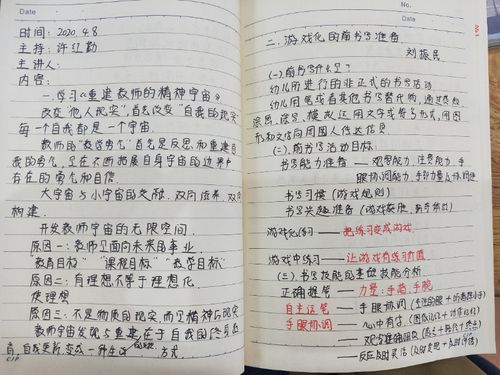 Date
时间: 2020.4.8
主持: 许红勤
主讲人:
内容:
一.学习《重建教师的精神宇宙》
改变"他人现实",首先改变"自我的现实"
每一个自我都是一个宇宙.
教师的"教学勇气"首先是反思,和重建自
我的勇气,是在不断拓展自身宇宙的边界中
存在的勇气和自信.
大宇宙与小宇宙的交融,双向滋养,双向
构建.
开发教师宇宙的无限空间.
原因一:教师是面向未来的事业.
"教育目标" "课程目标" "教学目标"
原因二:有理想不等于理想化.
使理想
原因三:不是物质的现实,而是精神的现实
教师宇宙发现与重建,在于自我的终身教
育,自我更新,变成一种生活 方式.
No.
Date
二.游戏化的前书写准备
刘振民
(一)前书写什么?
幼儿所进行的非正式的书写活动
幼儿用笔或者其他书写替代物,通过感知,
涂画、涂写、模拟运用文字或符号形式,用图
形和文字向周围人传达信息
(二)前书写活动目标:
书写能力准备 — 观察能力,注意能力,手
眼协调能力,手部力量及协调性
书写习惯 (游戏规则)
书写兴趣准备 (游戏体验,
游戏化练习 — 把练习变成游戏
游戏中练习 — 让游戏有练习价值
(三).书写技能的基础技能分析
正确握笔 — 力量:手指,手腕
自主运笔 — 手眼协调
手眼协调 — 心中有字
— 观察准确到位
— 反应及时灵活